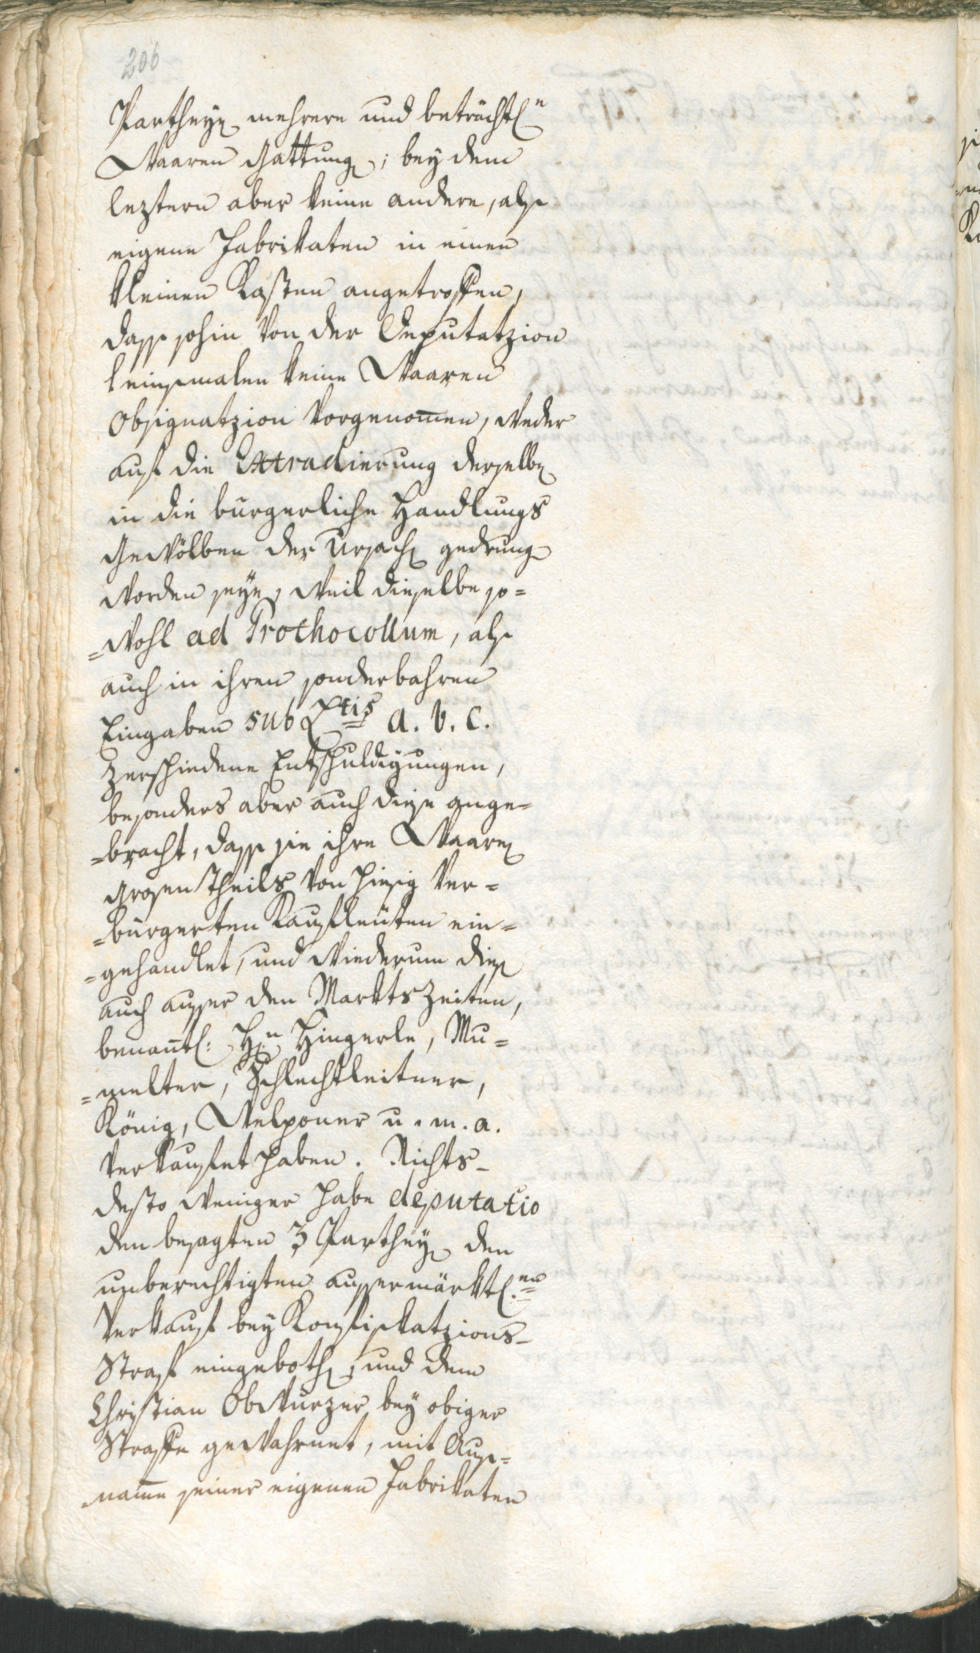 206
Partheyen mehrere und beträchtln
Waaren Gattungen; bey dem
leztern aber keine andere, als
eigene Fabrikaten in einen
kleinen Kasten angetroffen,
dass sohin von der Deputatzion
keinsmalen keine Waaren
Obsignatzion vorgenomen, weder
auf die Extradierung derselben
in die bürgerliche Handlungs
Gewölber der Ursachen gedrungen
worden seye, weil dieselbe so=
=wohl ad Prothocollum, als
auch in ihren sonderbahren
Eingaben sub Lrtis A. b. C.
zerschiedene Entschuldigungen,
besonders aber auch diese ange=
=bracht, dass sie ihre Waaren
grosen Theils von hiesig ver=
=bürgerten Kaufleüten ein=
=gehandlet, und wiederum diesen
auch ausser den Marktszeiten,
benantl: Hn Hingerle, Mu=
=melter, Schlechtleitner,
König, Welponer u. m. a.
verkaufet haben. Nichts-
desto weniger habe deputatio
den besagten 3 Partheyen den
unberechtigten aussermärktl.en
Verkauf bey Konfiskatzions-
Straf eingebothen, und dem
Christian Obwurzer bey obiger
Straffe gewahrnet, mit Aus=
name seiner eigenen Fabrikaten